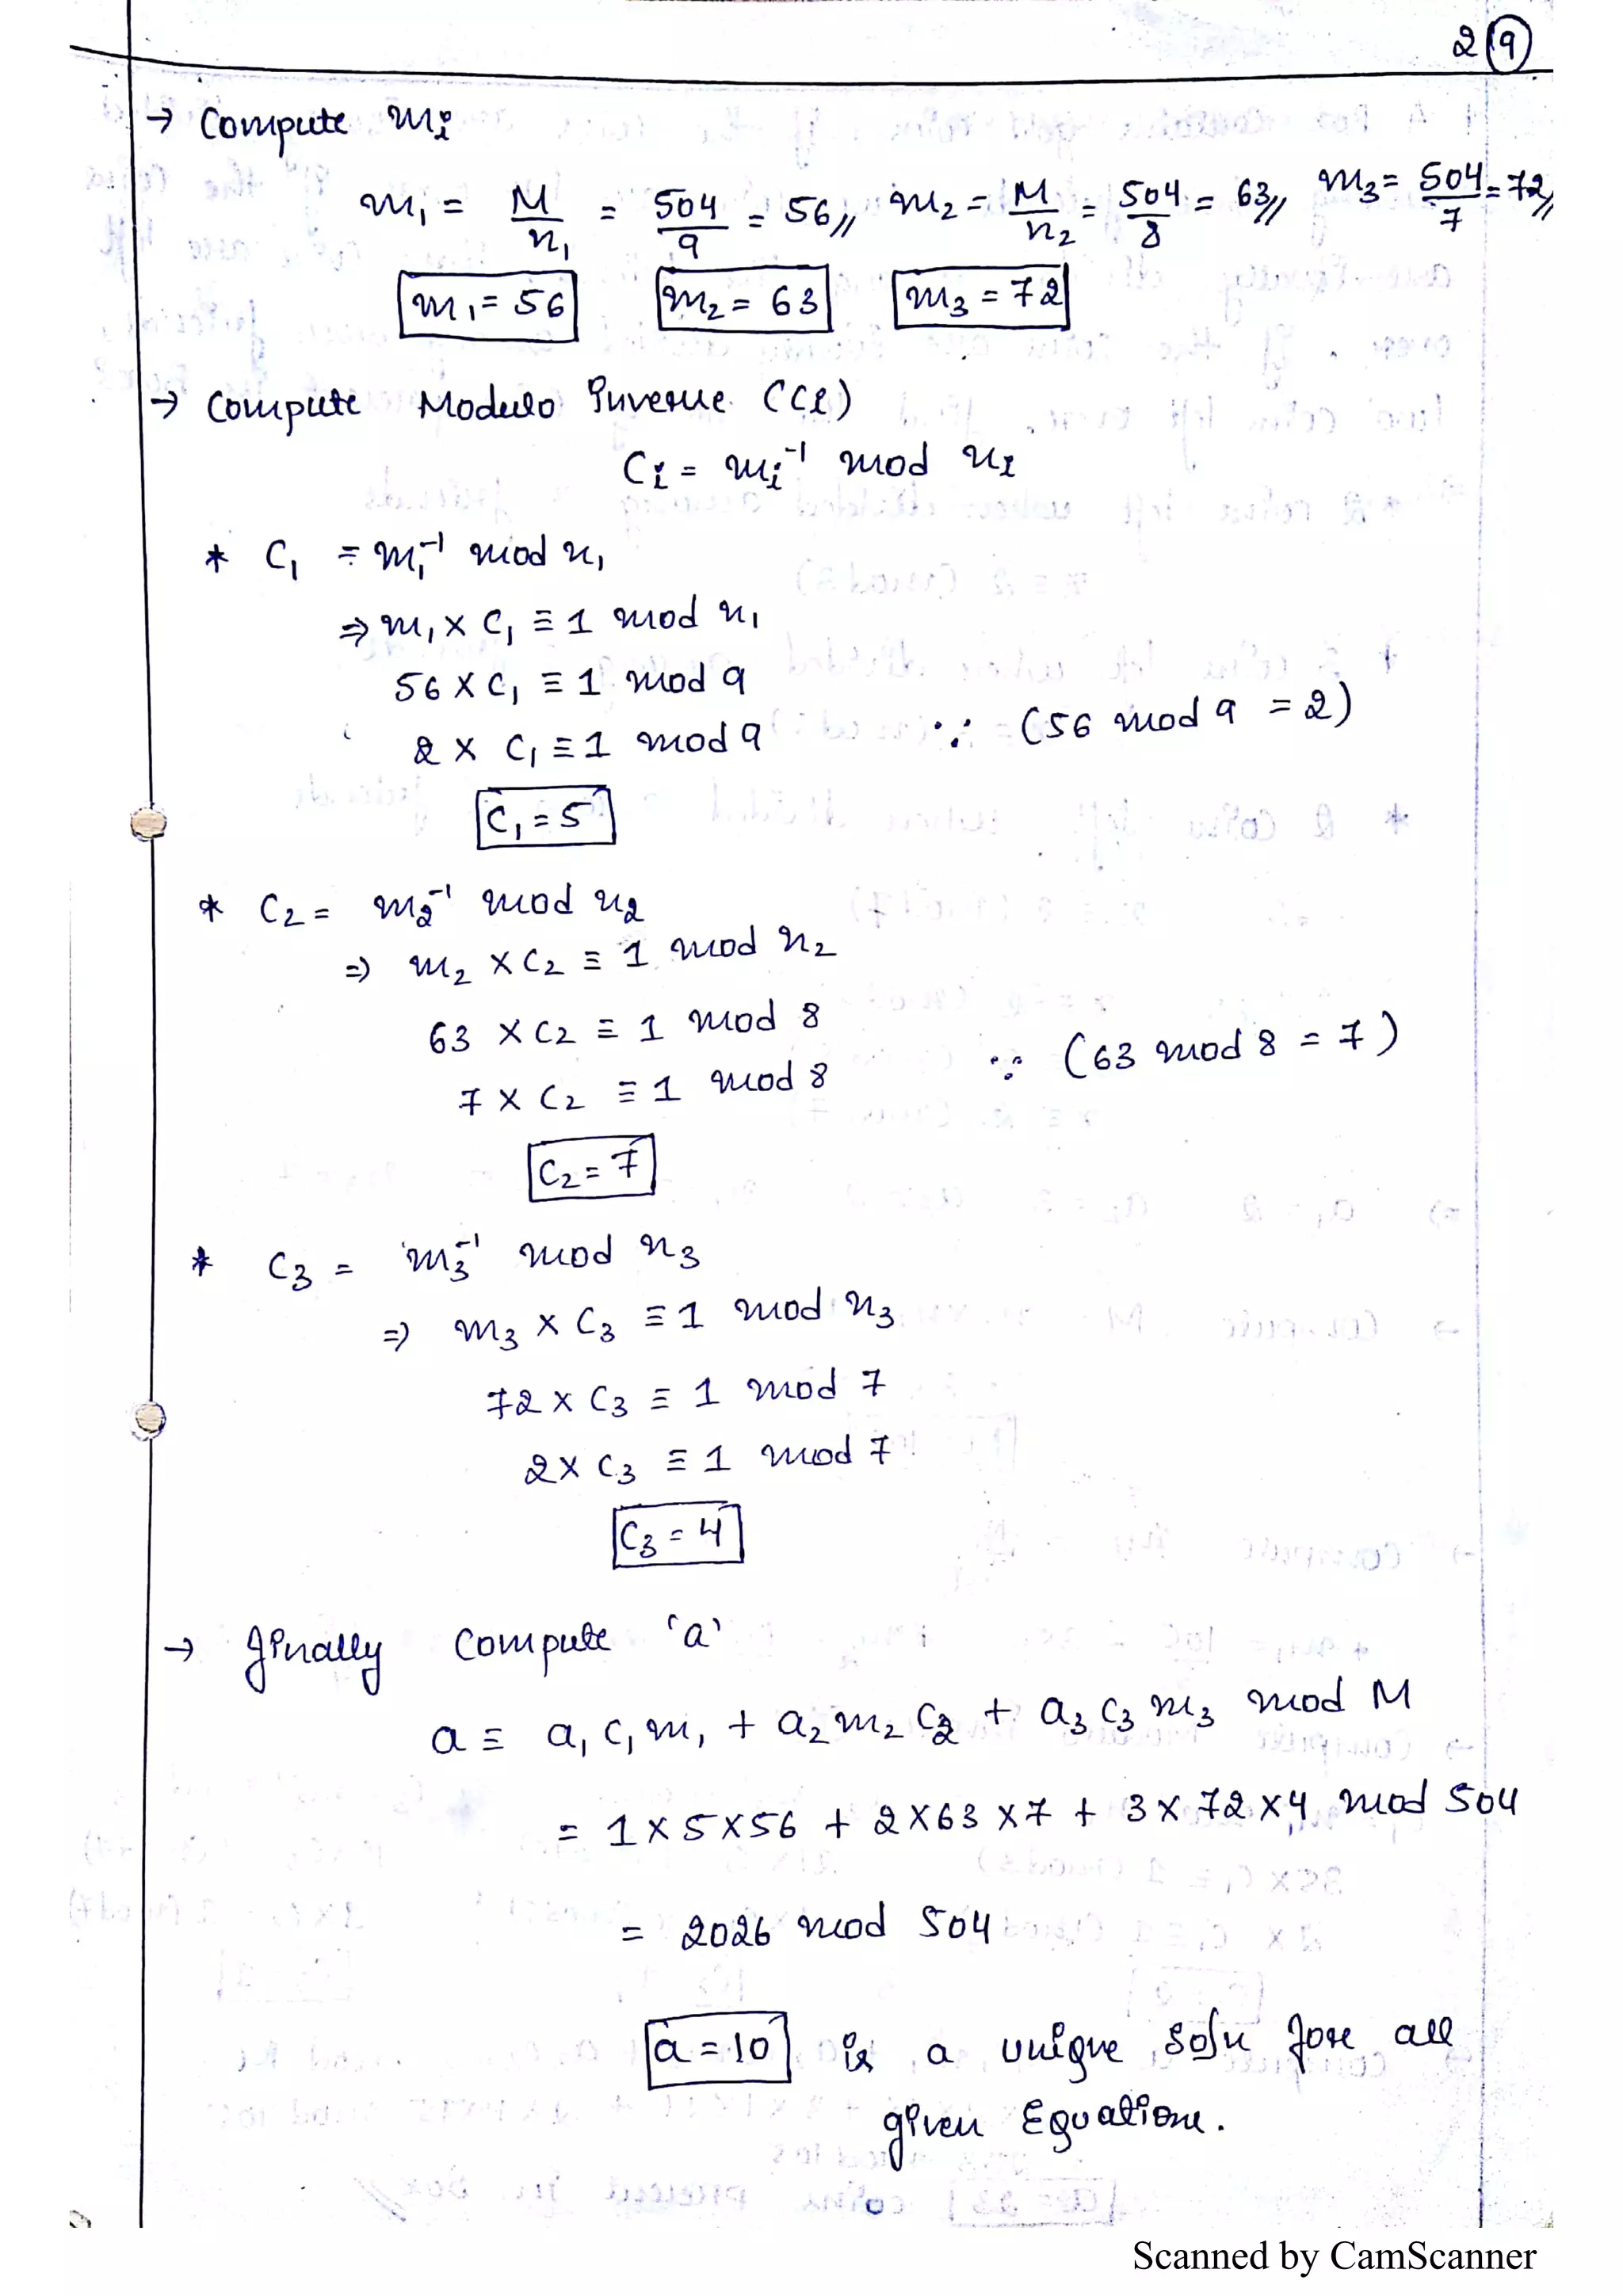 2 9
→ Compute mi
m₁ = M/n₁ = 504/9 = 56//, m₂ = M/n₂ = 504/8 = 63// m₃ = 504/7 = 72//
m₁ = 56 m₂ = 63 m₃ = 72
→ Compute Modulo Inverse (Ci)
Ci = mi⁻¹ mod ni
* C₁ = m₁⁻¹ mod n₁
⇒ m₁ × C₁ ≡ 1 mod n₁
56 × C₁ ≡ 1 mod 9
2 × C₁ ≡ 1 mod 9 ∵ (56 mod 9 = 2)
C₁ = 5
* C₂ = m₂⁻¹ mod n₂
⇒ m₂ × C₂ ≡ 1 mod n₂
63 × C₂ ≡ 1 mod 8
7 × C₂ ≡ 1 mod 8 ∵ (63 mod 8 = 7)
C₂ = 7
* C₃ = m₃⁻¹ mod n₃
⇒ m₃ × C₃ ≡ 1 mod n₃
72 × C₃ ≡ 1 mod 7
2 × C₃ ≡ 1 mod 7
C₃ = 4
→ finally Compute 'a'
a ≡ a₁ C₁ m₁ + a₂ m₂ C₂ + a₃ C₃ m₃ mod M
= 1 × 5 × 56 + 2 × 63 × 7 + 3 × 72 × 4 mod 504
= 2026 mod 504
a = 10 is a unique soln for all
given Equations.
Scanned by CamScanner